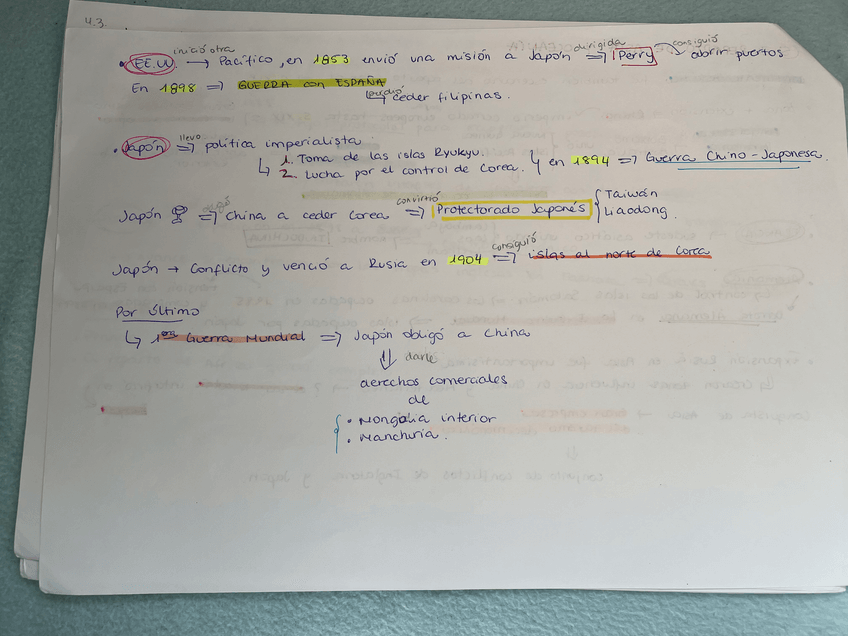 4.3.
inició otra dirigida consiguió
• EE.UU. → Pacífico, en 1853 envió una misión a Japón ⇒ Perry → abrir puertos
En 1898 ⇒ GUERRA con ESPAÑA
ceder filipinas.
llevo
• Japón ⇒ política imperialista
↳ 1. Toma de las islas Ryukyu.
2. Lucha por el control de Corea. ↳ en 1894 ⇒ Guerra Chino-Japonesa.
convirtió
Japón ⇒ China a ceder Corea ⇒ Protectorado Japonés { Taiwán
Liaodong.
consiguió
Japón → Conflicto y venció a Rusia en 1904 ⇒ islas al norte de Corea
Por Último
↳ 1era Guerra Mundial ⇒ Japón obligó a China
⇓ darle
derechos comerciales
de
• Mongolia interior
• Manchuria.